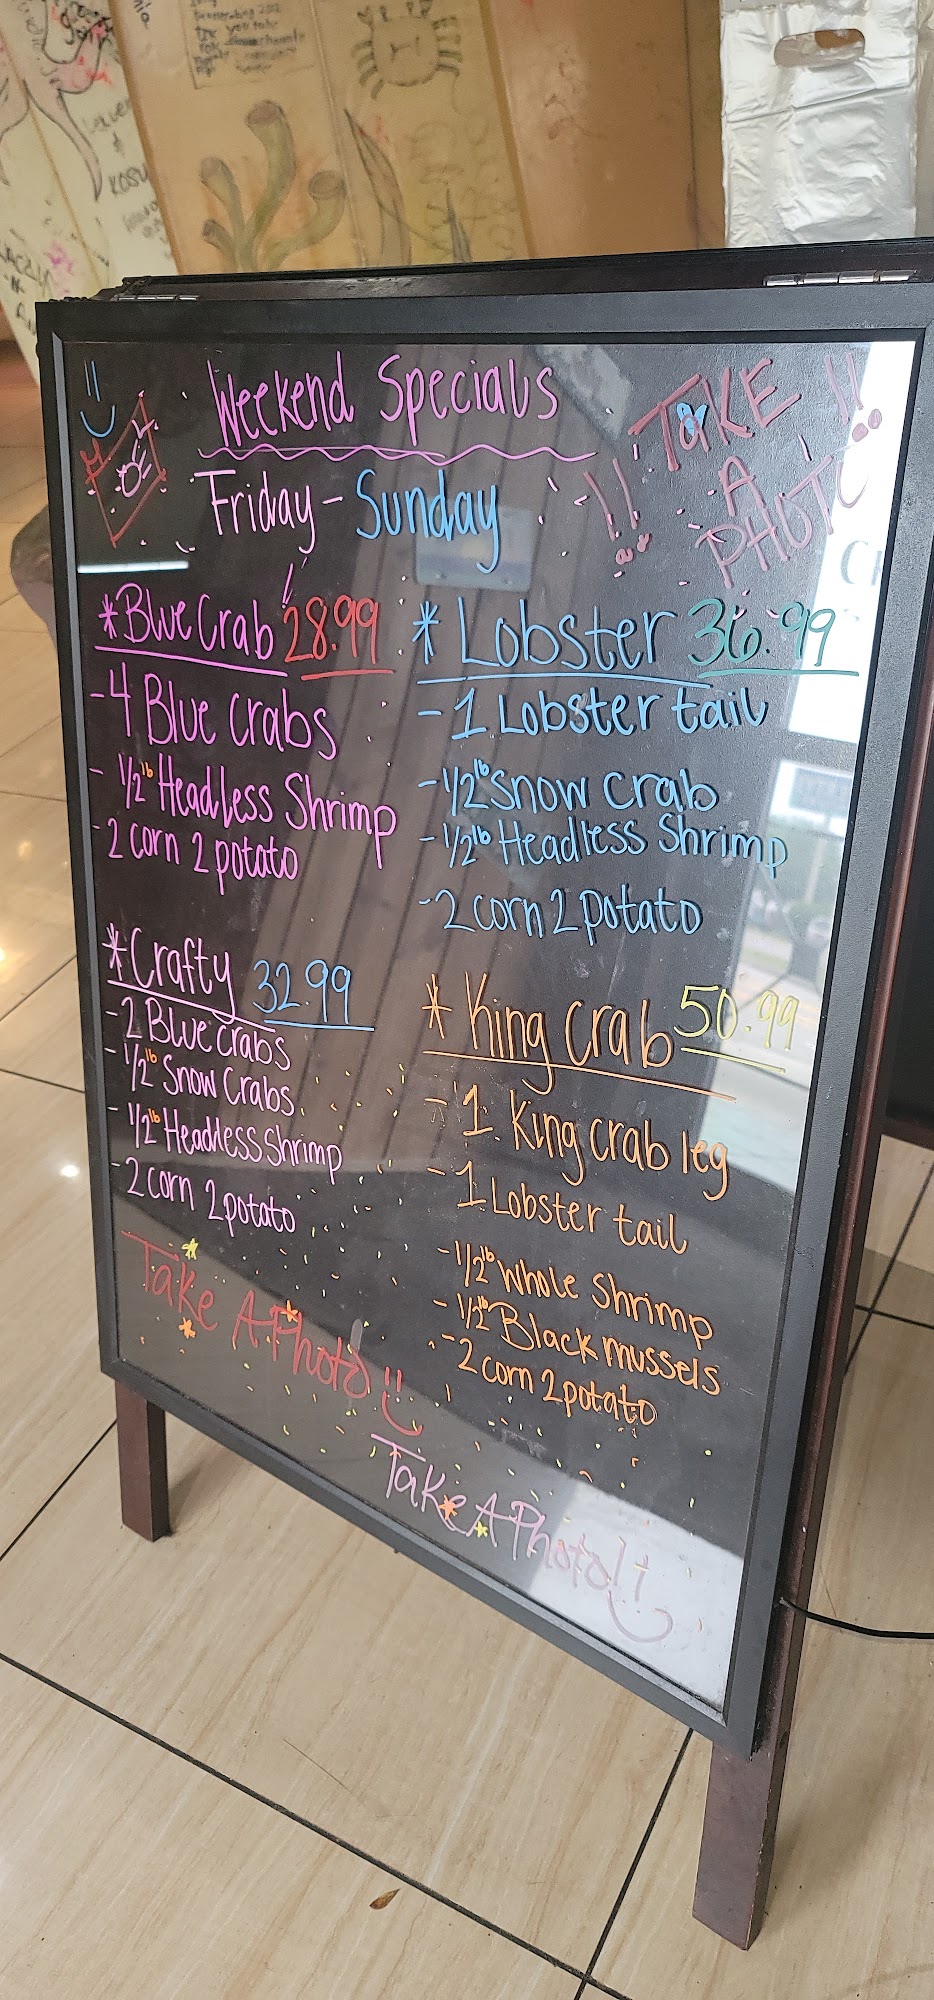 Weekend Specials
Friday - Sunday
TAKE !!
!! A
PHOTO
*Blue Crab 28.99
- 4 Blue Crabs
- 1/2 lb Headless Shrimp
- 2 corn 2 potato
*Crafty 32.99
- 2 Blue crabs
- 1/2 lb Snow Crabs
- 1/2 lb Headless Shrimp
- 2 corn 2 potato
Take A Photo!!
* Lobster 36.99
- 1 Lobster tail
- 1/2 lb Snow crab
- 1/2 lb Headless Shrimp
- 2 corn 2 potato
* King Crab 50.99
- 1 King crab leg
- 1 Lobster tail
- 1/2 lb Whole Shrimp
- 1/2 lb Black mussels
- 2 corn 2 potato
Take A Photo!!